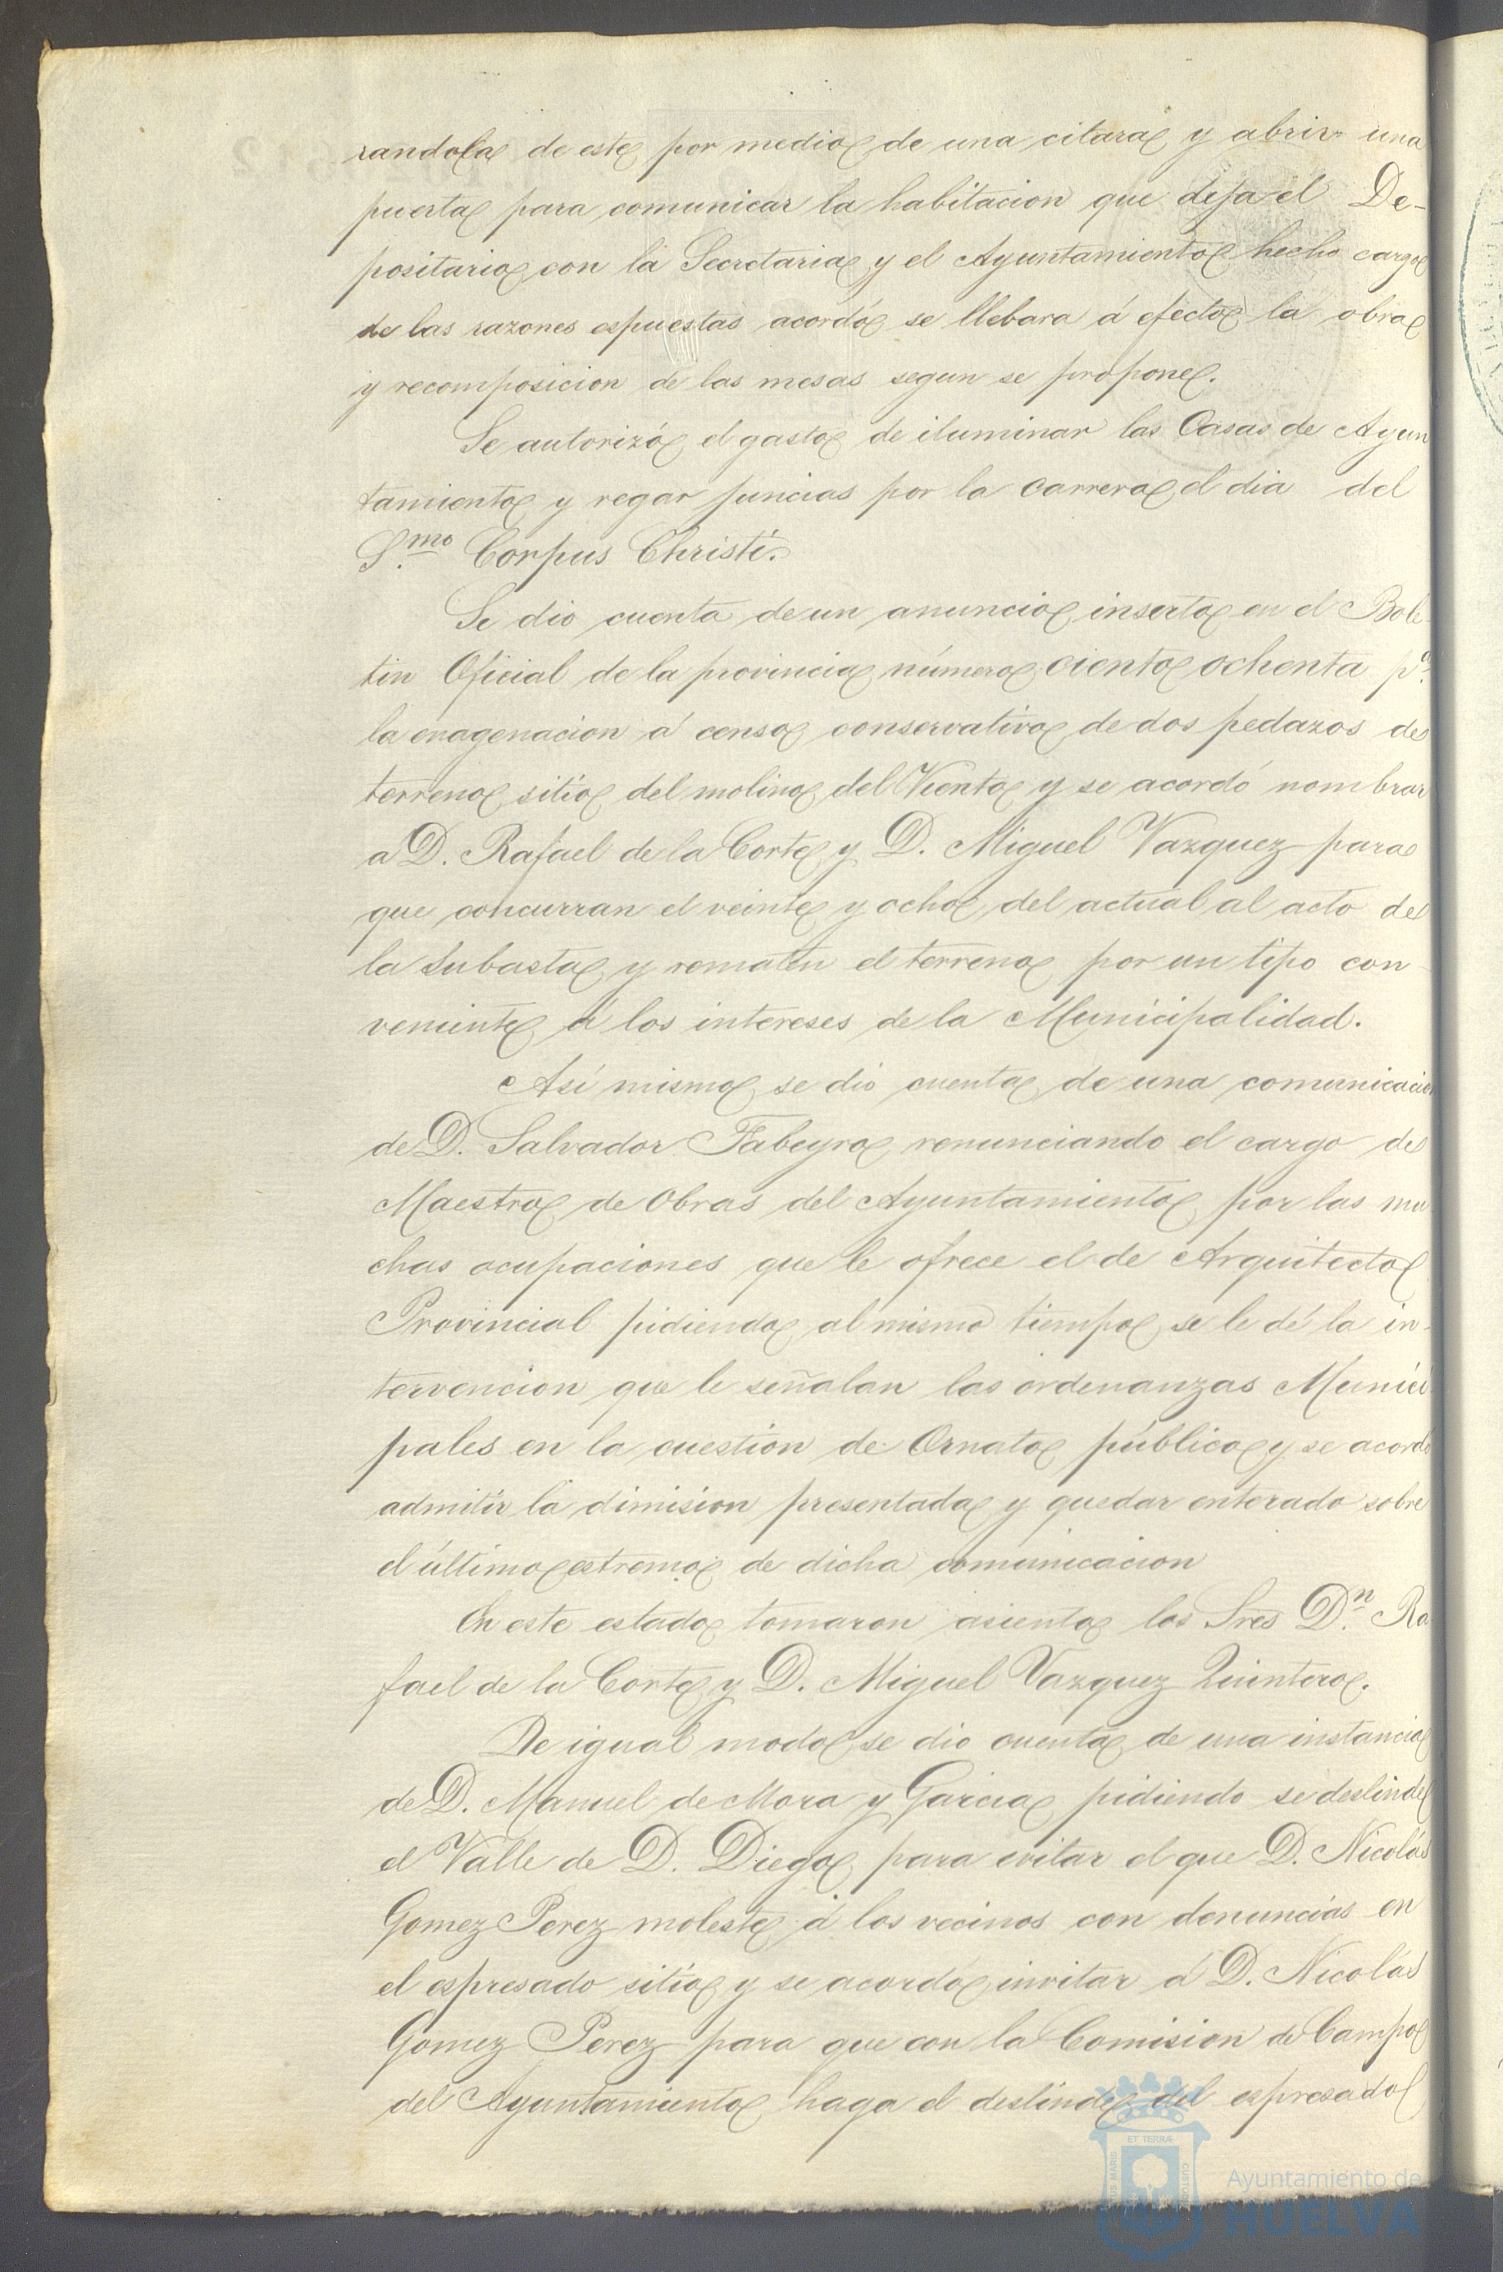 randola de este por medio de una citara y abrir una
puerta para comunicar la habitacion que deja el De-
positario con la Secretaria y el Ayuntamiento hecho cargo
de las razones espuestas acordó se llebara á efecto la obra
y recomposicion de las mesas segun se propone.
Se autorizó el gasto de iluminar las Casas de Ayun
tamiento y regar juncias por la carrera el dia del
S.mo Corpus Christi.
Se dio cuenta de un anuncio inserto en el Bole
tin Oficial de la provincia número ciento ochenta pa.
la enagenacion á censo conservativo de dos pedazos de
terreno sitio del molino del Viento y se acordó nombrar
a D. Rafael de la Corte y D. Miguel Vazquez para
que concurran el veinte y ocho del actual al acto de
la subasta y rematen el terreno por un tipo con
veniente á los intereses de la Municipalidad.
Así mismo se dió cuenta de una comunicacion
de D. Salvador Fabeyro renunciando el cargo de
Maestro de Obras del Ayuntamiento por las mu
chas ocupaciones que le ofrece el de Arquitecto
Provincial pidiendo al mismo tiempo se le dé la in-
tervencion que le señalan las ordenanzas Munici
pales en la cuestion de Ornato público y se acordó
admitir la dimision presentada y quedar enterado sobre
el último estremo de dicha comunicacion
En este estado tomaron asiento los Sres D.n Ra
fael de la Corte y D. Miguel Vazquez Quintero.
De igual modo se dio cuenta de una instancia
de D. Manuel de Mora y Garcia pidiendo se deslinde
el Valle de D. Diego para evitar el que D. Nicolás
Gomez Perez moleste á los vecinos con denuncias en
el espresado sitio y se acordó invitar á D. Nicolás
Gomez Perez para que con la Comision de Campo
del Ayuntamiento haga el deslinde del espresado
ET TERRÆ
Ayuntamiento de
HUELVA